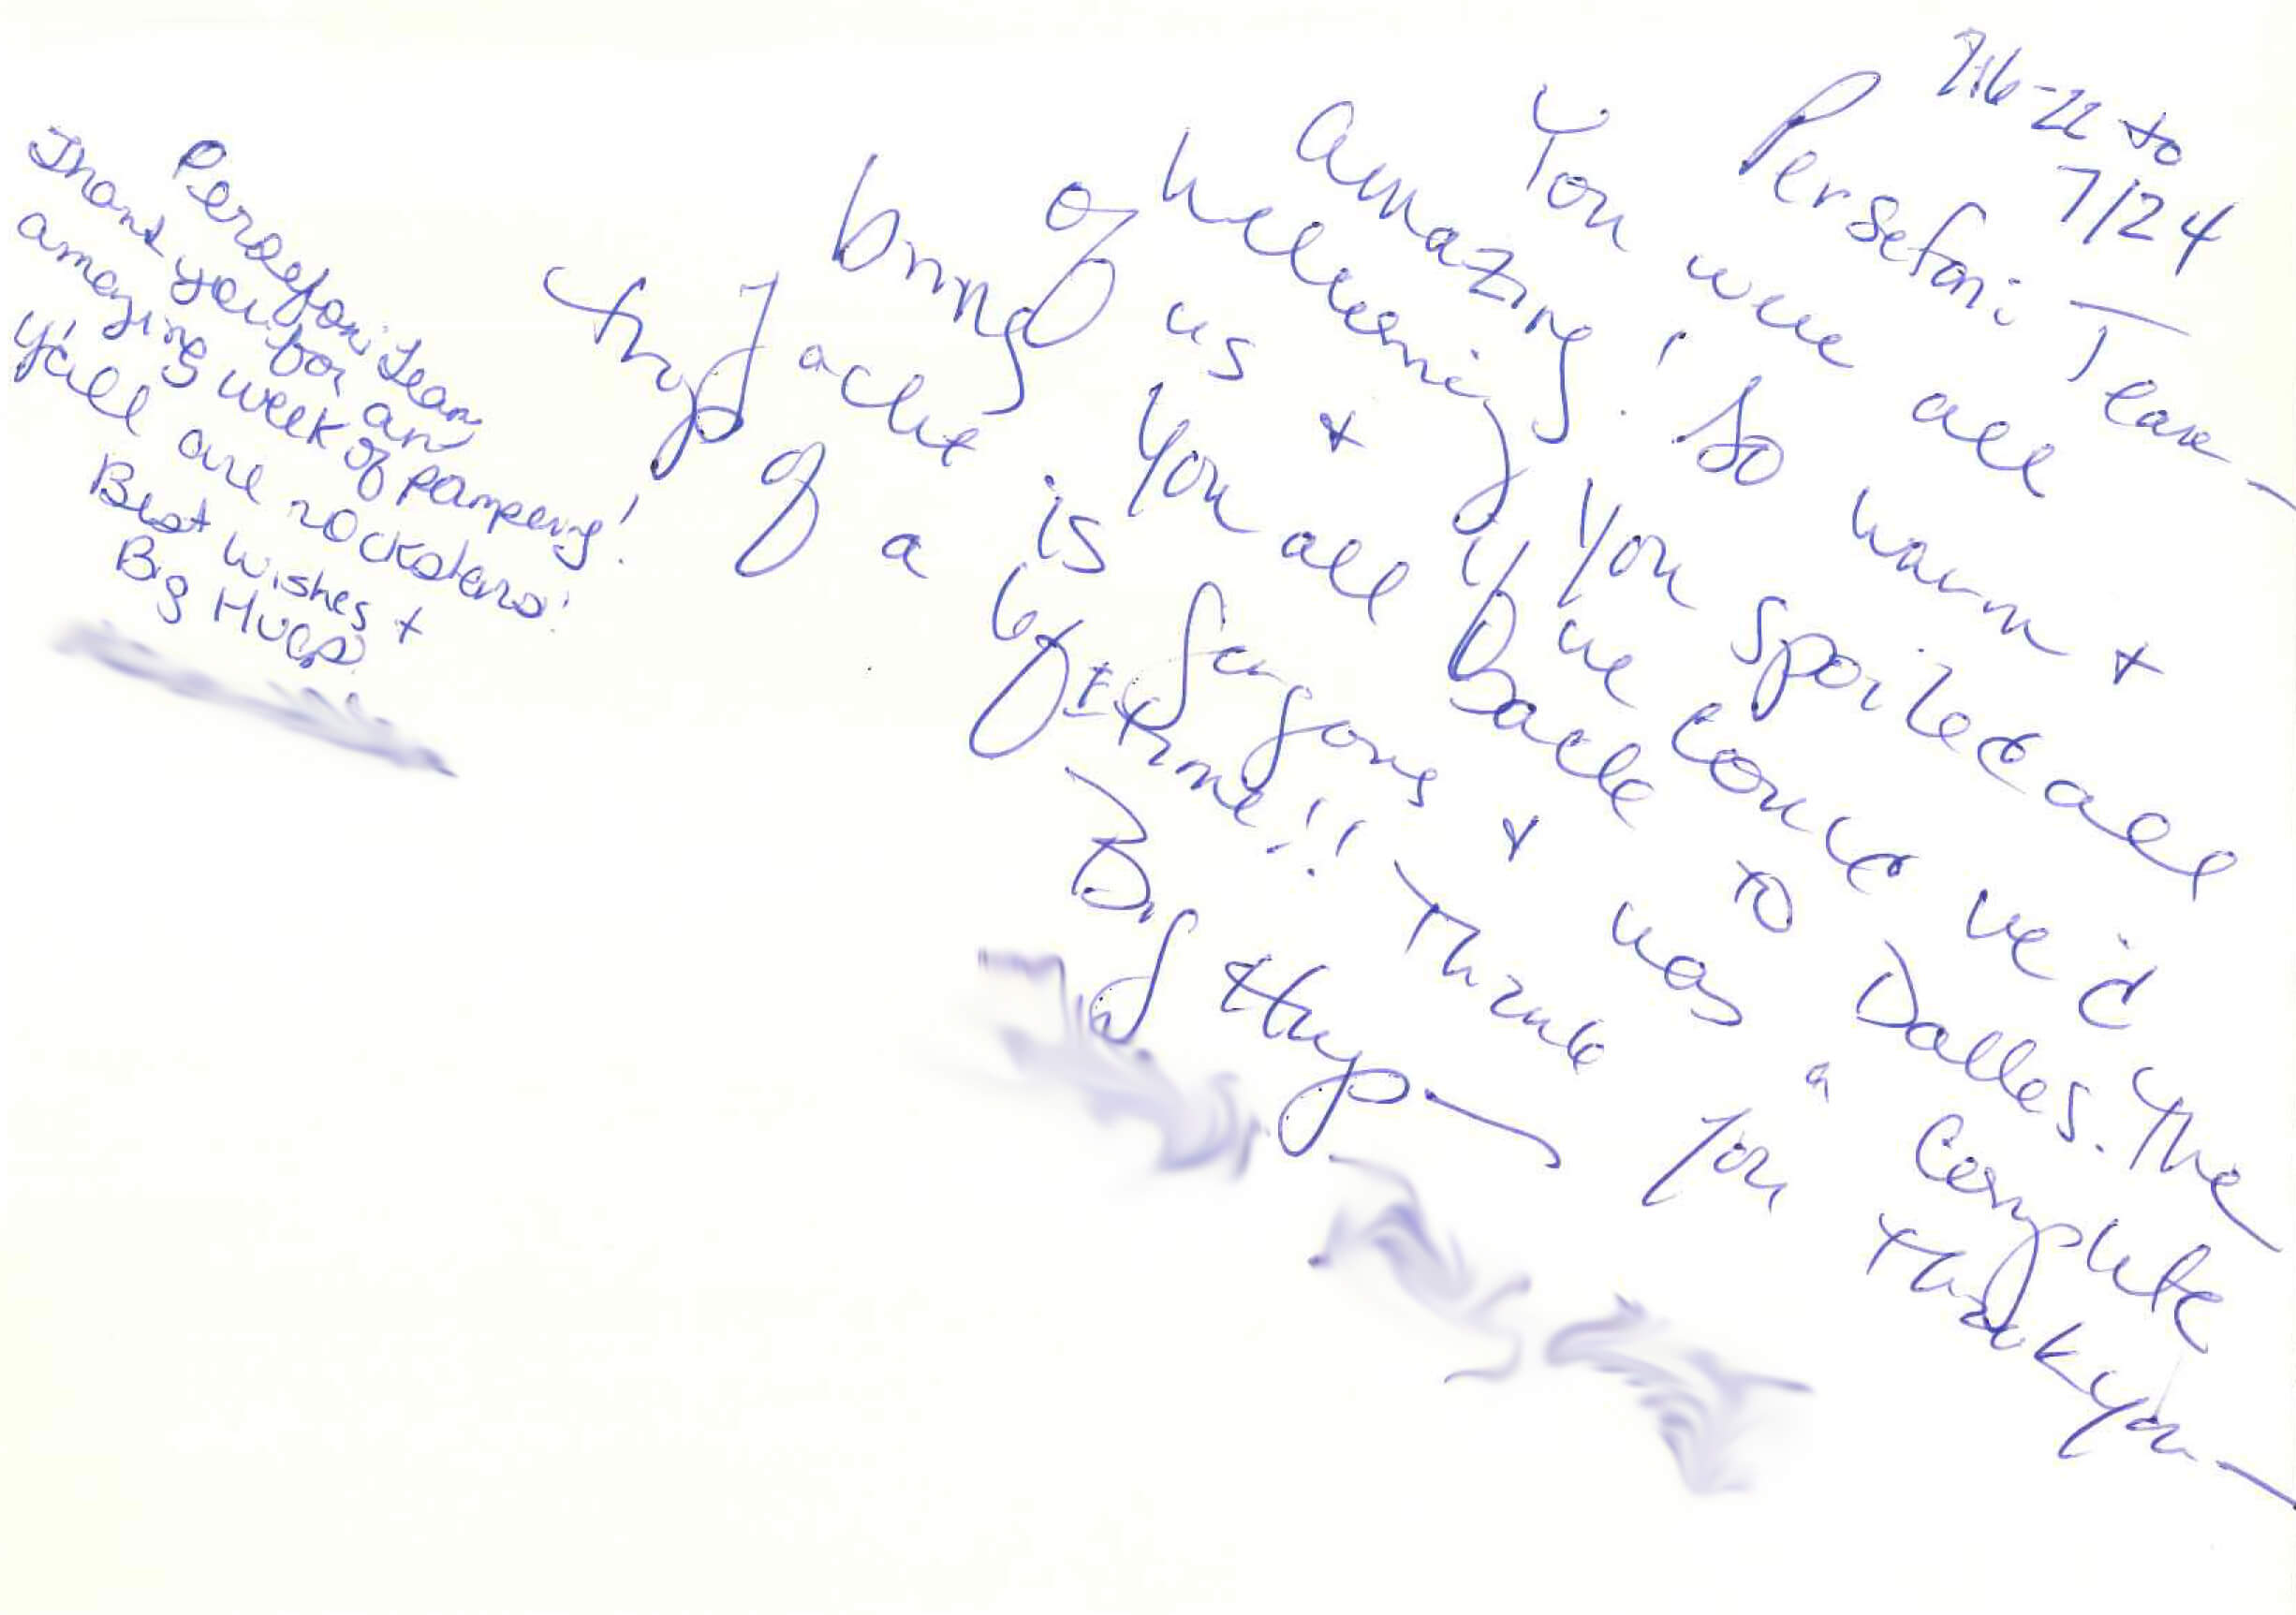 Persefoni Team
Thank you for an
amazing week of pampering!
Y'all are rockstars!
Best Wishes +
Big HUGS
7-16-22 to
7/24
Persefoni Team -
You were all
amazing! So warm +
welcoming, You spoiled all
of us + if we could we'd
bring you all back to Dallas. The
yacht is gorgeous & was a complete
trip of a lifetime!! Thank you thank you -
Big Hugs -